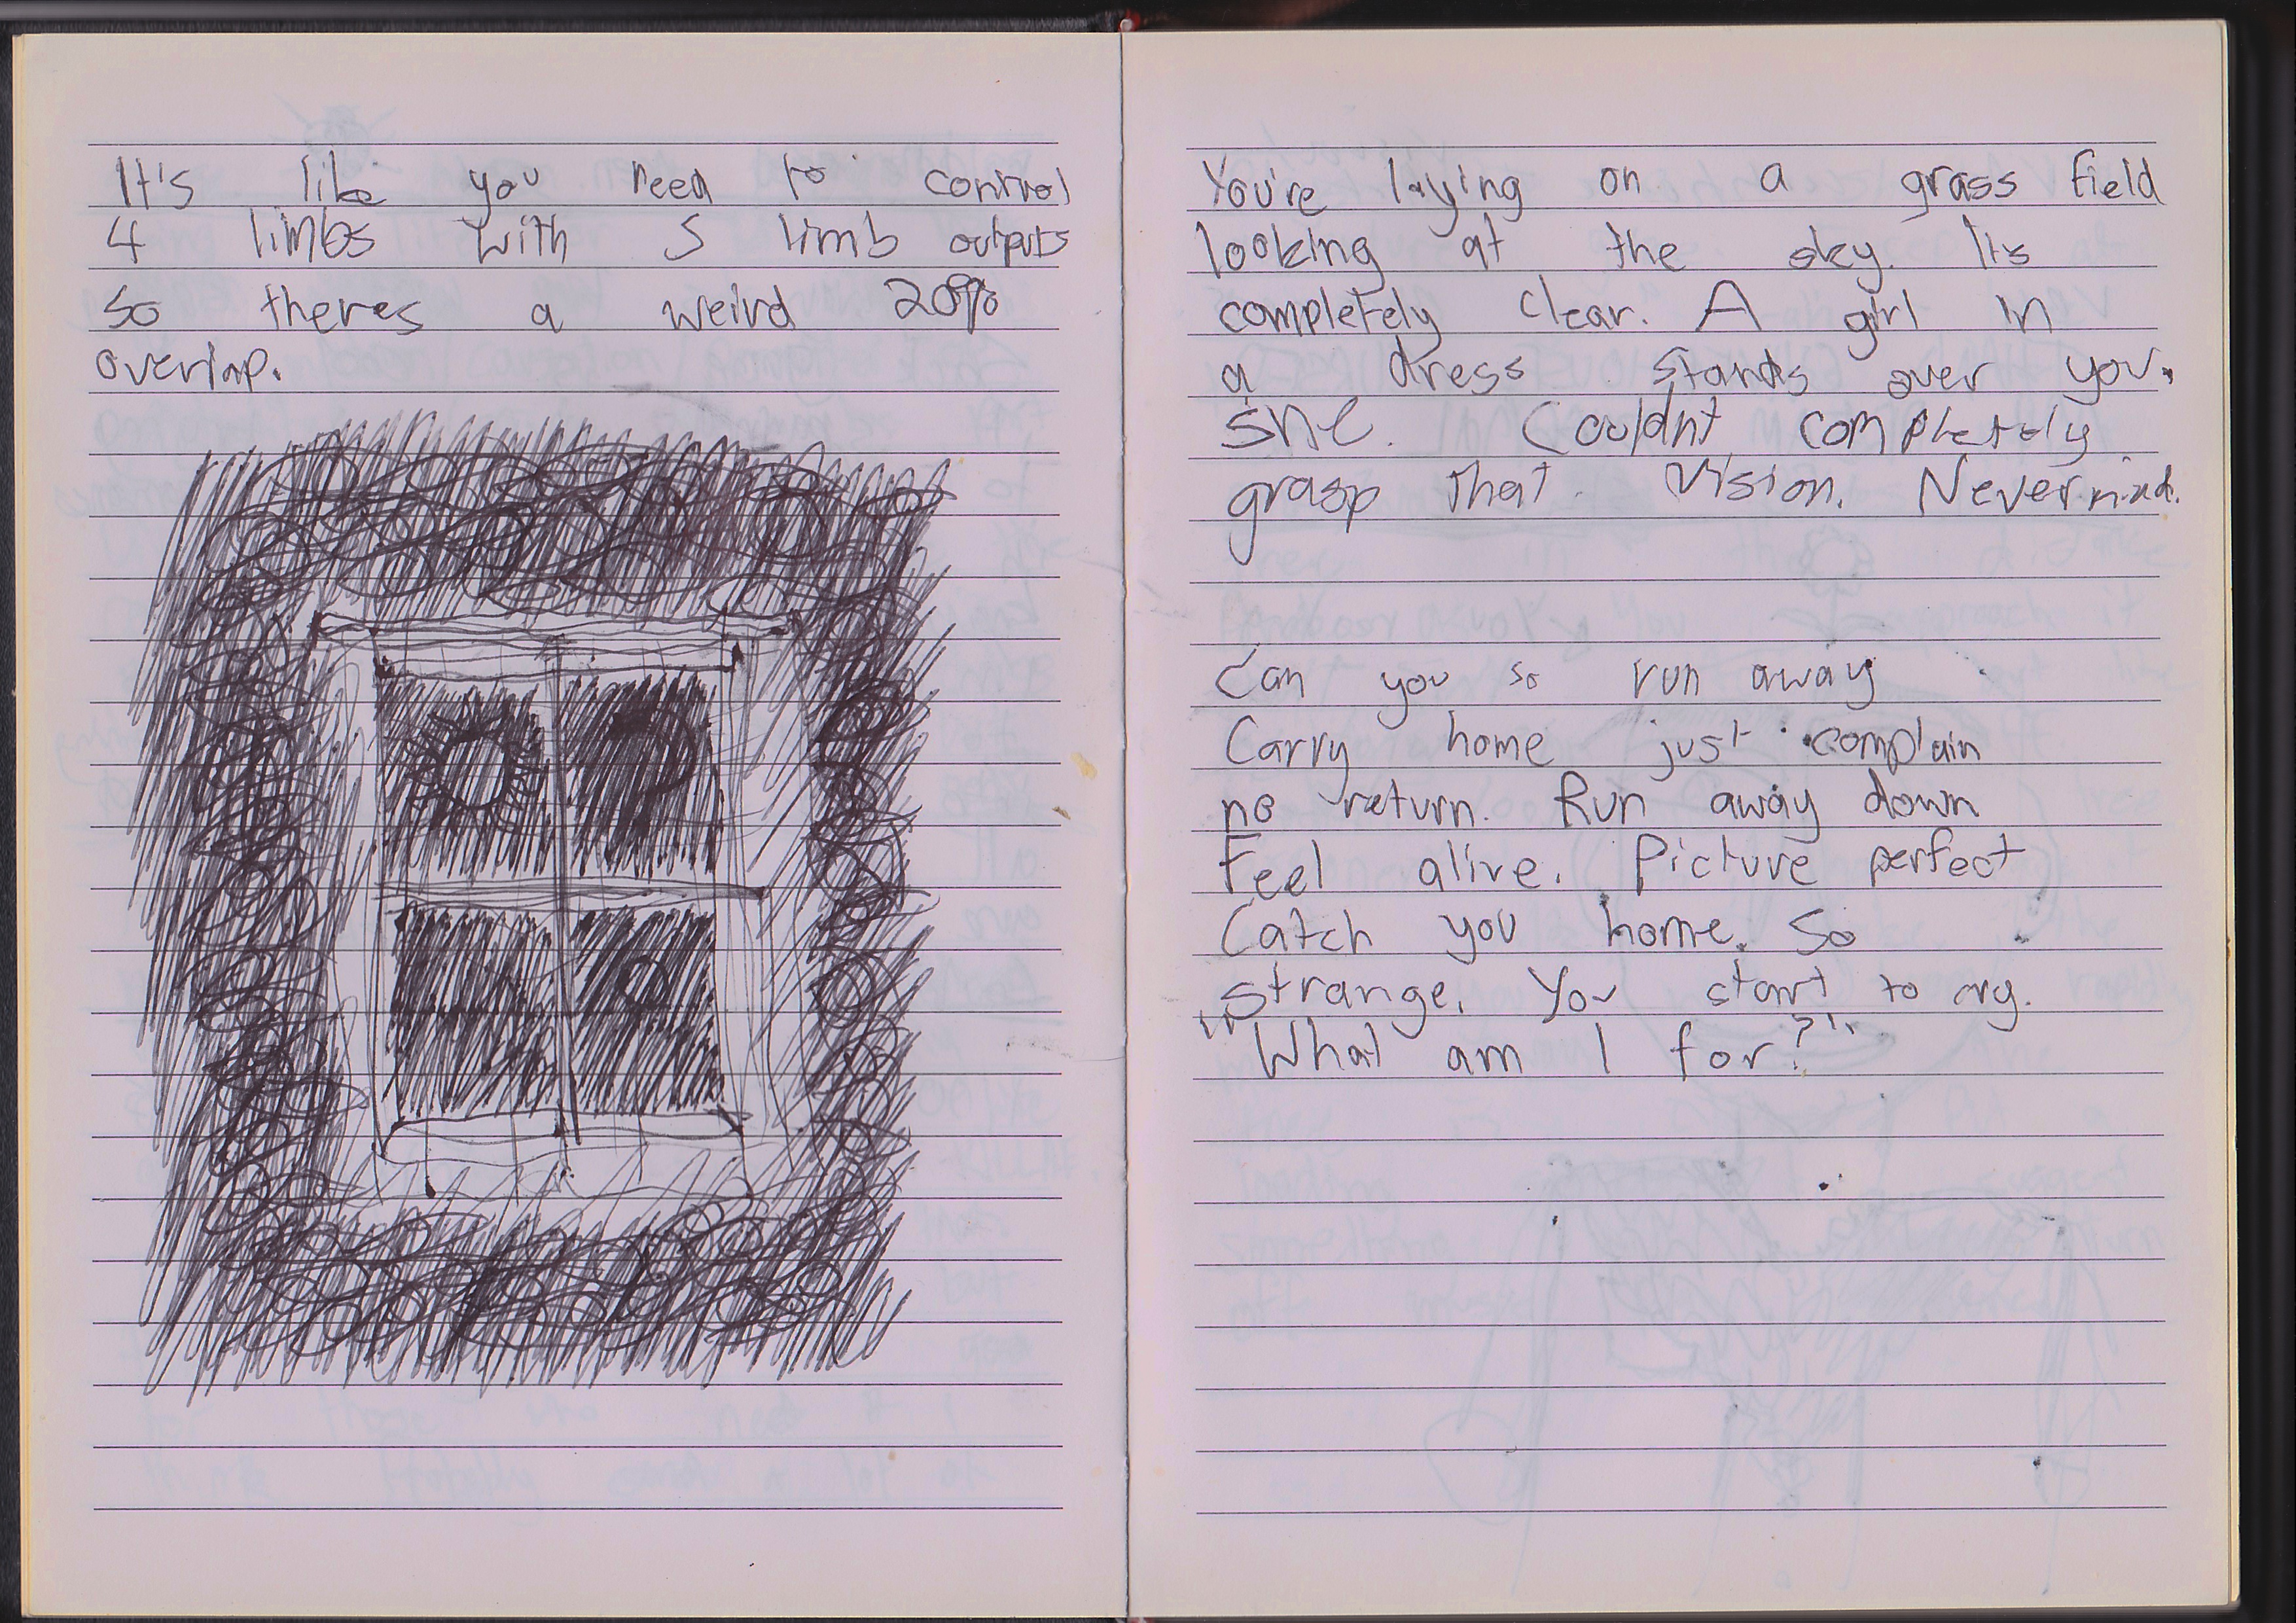 It's like you need to control
4 limbs with 5 limb outputs
so theres a weird 20%
overlap.
You're laying on a grass field
looking at the sky. Its
completely clear. A girl in
a dress stands over you.
She. Couldnt completely
grasp that. Vision. Nevermind.
Can you so run away
Carry home just complain
no return. Run away down
Feel alive. Picture perfect
Catch you home. So
strange. You start to cry.
"What am I for?"